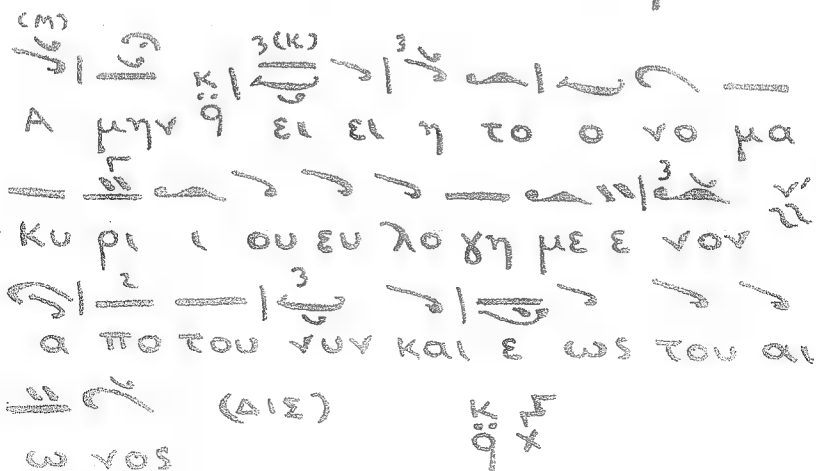 (Μ)
3(Κ)
Α μην κ̈ q ει ει η το ο νο μα
Κυ ρι ι ου ευ λο γη με ε νον
α πο του νυν και ε ως του αι
ω νος (ΔΙΣ) κ̈ q